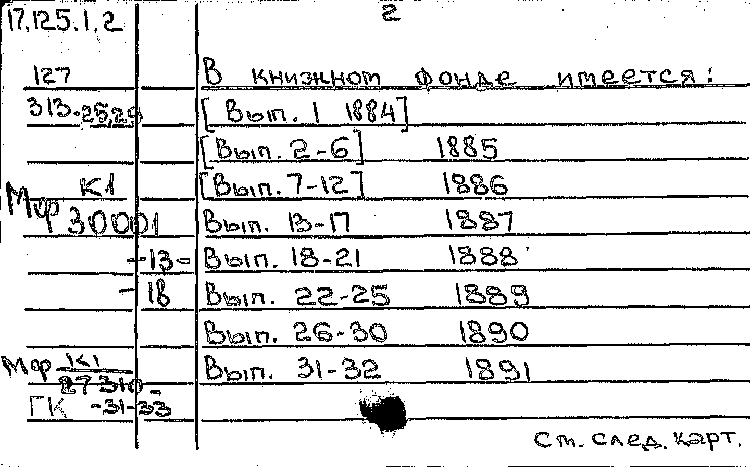 17.125.1,2 2
127 В книжном фонде имеется:
313-25,29 [Вып. 1 1884]
[Вып. 2-6] 1885
К1 [Вып. 7-12] 1886
Мф 30001 Вып. 13-17 1887
-13- Вып. 18-21 1888
-18 Вып. 22-25 1889
Вып. 26-30 1890
Мф К1 Вып. 31-32 1891
27310-
ГК -31-33
См. след. карт.